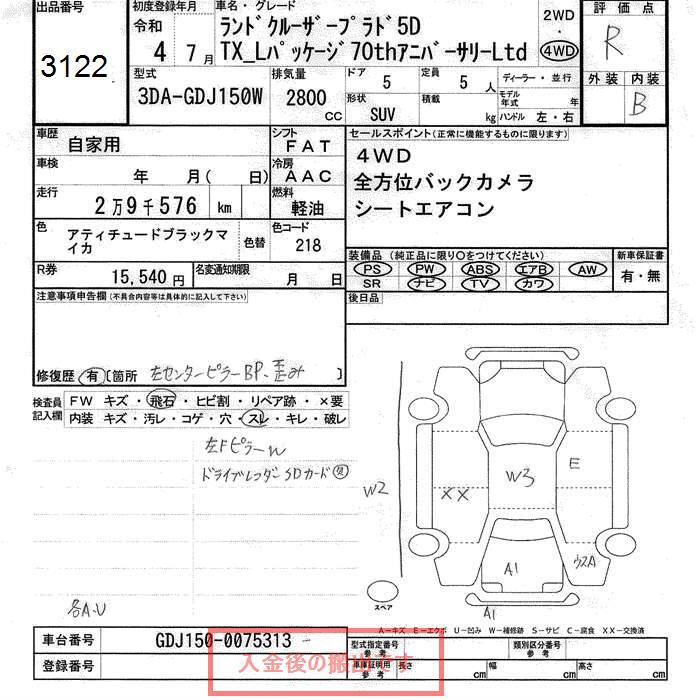 出品番号
3122
初度登録年月
令和
4 7月
車名・グレード
ランドクルーザープラド5D
TX_Lパッケージ70thアニバーサリーLtd
2WD
・
4WD
評価点
R
外装 内装
B
型式
3DA-GDJ150W
排気量
2800
CC
ドア
5
定員
5 人
形状
SUV
積載
kg
ディーラー・並行
モデル年式 年
ハンドル 左・右
車歴
自家用
シフト
FAT
車検
年 月( 日)
冷房
AAC
走行
2万9千576 km
燃料
軽油
色
アティチュードブラックマイカ
色替
色コード
218
R券
15,540円
名変通知期限
月 日
セールスポイント(正常に機能するものに限ります)
4WD
全方位バックカメラ
シートエアコン
装備品(純正品に限り○をつけてください)
PS PW ABS エアB AW
SR ナビ TV カワ
新車保証書
有・無
後日品
注意事項申告欄(不具合内容等は具体的に記入して下さい)
修復歴 有 [箇所 左センターピラーBP、歪み ]
検査員記入欄
FW キズ・飛石・ヒビ割・リペア跡・×要
内装 キズ・汚レ・コゲ・穴・スレ・キレ・破レ
左Fピラーw
ドライブレコダー SDカード
W2
XX
W3
E
A1
ウスA
A1
スペア
各A.U
A-キズ E-エクボ U-凹み W-補修跡 S-サビ C-腐食 XX-交換済
車台番号
GDJ150-0075313
登録番号
入金後の搬出です
型式指定番号
参考
類別区分番号
参考
車庫証明用
参考
長さ cm
幅 cm
高さ cm